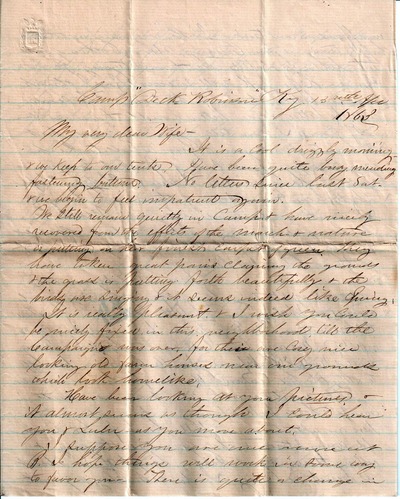 Camp "Dick Robinson" Ky 15
1863
My very dear Wife -
It is a cool drizzly morning
& we keep to our tents. Have been quite busy mending
fastening buttons. No letter since last Sat.
& we begin to feel impatient again.
We still remain quietly in Camp & have nicely
recovered from the effects of the march & nature
is putting on her green. They
have taken great pains cleaning the grounds
& the grass is putting forth beautifully & the
birds are singing & it seems indeed like Spring.
It is really pleasant & I wish you could
be nicely fixed in this neighborhood till the
Campaign was over, for there are many nice
looking old farm houses near our grounds
which look homelike.
Have been looking at your pictures, &
it almost seems as though I could hear
you & as you move about.
I suppose you are
I hope things will work in some way
to favor you. There is quite a change in